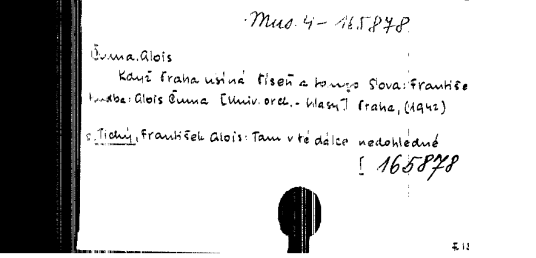 Mus. 4 - 165878
Čuma, Alois
Když Praha usíná Píseň a tango Slova: Františe
hudba: Alois Čuma [Univ. orch. - hlasy] Praha, (1942)
s. Tichý, František Alois: Tam v té dálce nedohledné
[ 165878